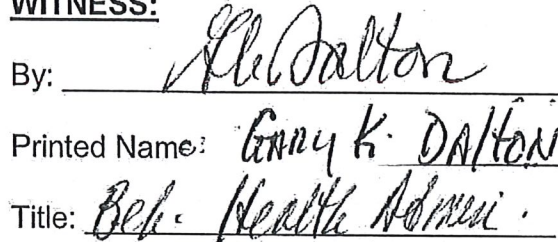 WITNESS:
By: GK Dalton
Printed Name: GARY K. DALTON
Title: Beh. Health Admin.